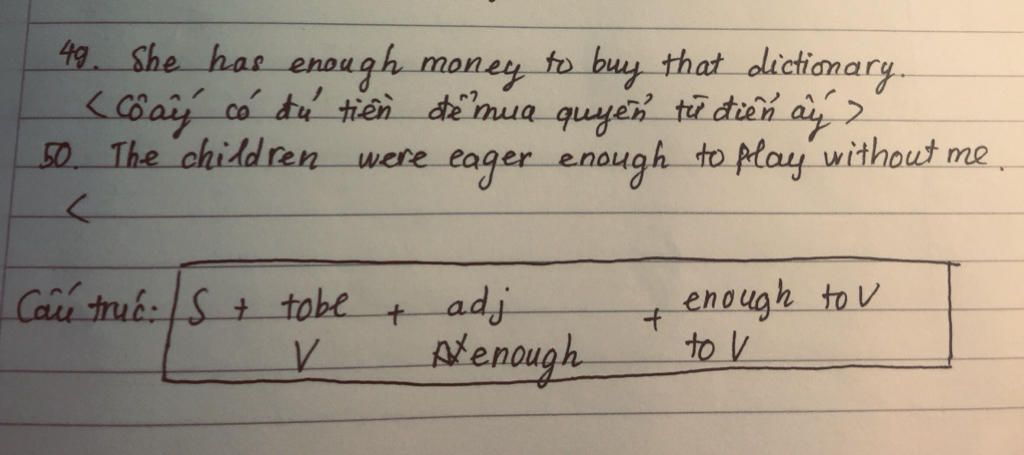 49. She has enough money to buy that dictionary.
<Cô ấy có đủ tiền để mua quyển từ điển ấy>
50. The children were eager enough to play without me.
<
Cấu trúc: S + tobe + adj + enough to V
V enough to V